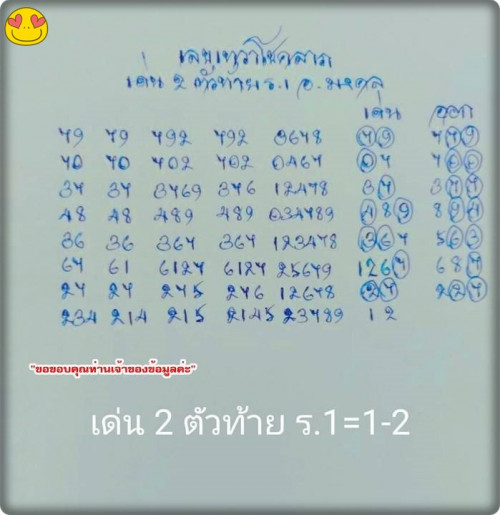 เลขเทวาโชคลาภ
เด่น 2 ตัวท้าย ร.1 อ.มงคล
เด่น ออก
79 79 792 792 3678 79 779
70 70 702 702 0467 07 700
37 37 3769 376 12478 37 377
48 48 489 489 034789 489 894
36 36 367 367 123478 367 563
67 61 6127 6127 25679 1267 687
27 27 275 276 12678 27 227
234 214 215 2145 23789 12
"ขอขอบคุณท่านเจ้าของข้อมูลค่ะ"
เด่น 2 ตัวท้าย ร.1=1-2